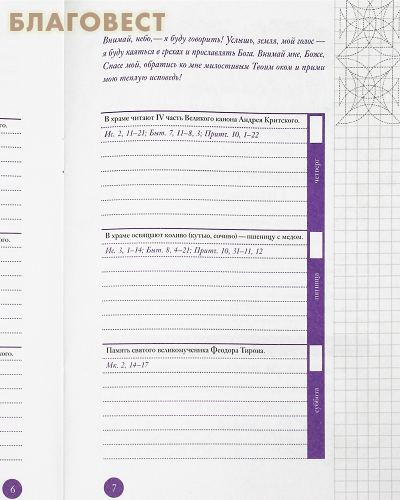 БЛАГОВЕСТ
Внимай, небо, — я буду говорить! Услышь, земля, мой голос —
я буду каяться в грехах и прославлять Бога. Внимай мне, Боже,
Спасе мой, обратись ко мне милостивым Твоим оком и прими
мою теплую исповедь!
кого.
В храме читают IV часть Великого канона Андрея Критского.
Ис. 2, 11–21; Быт. 7, 11–8, 3; Притч. 10, 1–22
четверг
кого.
В храме освящают коливо (кутью, сочиво) — пшеницу с медом.
Ис. 3, 1–14; Быт. 8, 4–21; Притч. 10, 31–11, 12
пятница
кого.
Память святого великомученика Феодора Тирона.
Мк. 2, 14–17
суббота
6
7